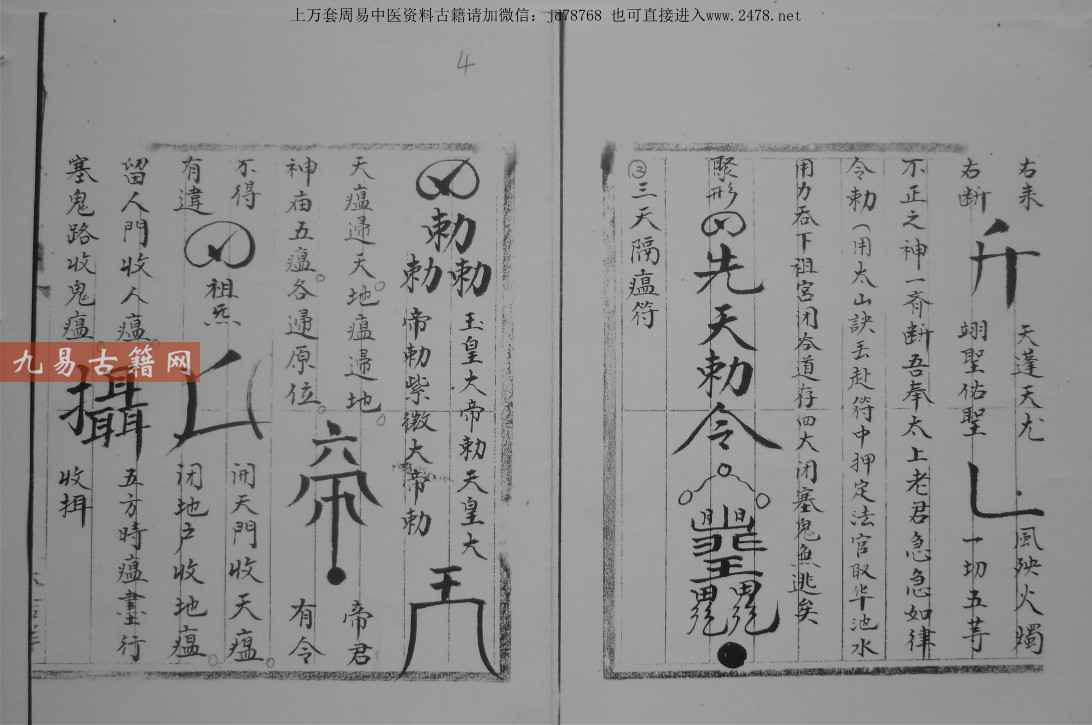 上万套周易中医资料古籍请加微信：jd78768 也可直接进入www.2478.net
4
九易古籍网
右来 天蓬天尤 風殃火燭
右断 翊聖佑聖 一切五等
不正之神一齊断吾奉太上老君急急如律
令勅（用太山訣丟赴符中押定法官取华池水
用力吞下祖宮闭谷道存四大闭塞鬼無逃矣
聚形
先天勅令
②三天隔瘟符
勅
勅勅
玉皇大帝勅天皇大
帝勅紫微大帝勅
天瘟還天。地瘟還地。 帝君
神庙五瘟。各還原位。 有令
不得 祖炁 开天門收天瘟。
有違 闭地户收地瘟。
留人門收人瘟。 五方時瘟盡行
塞鬼路收鬼瘟 攝 收捐